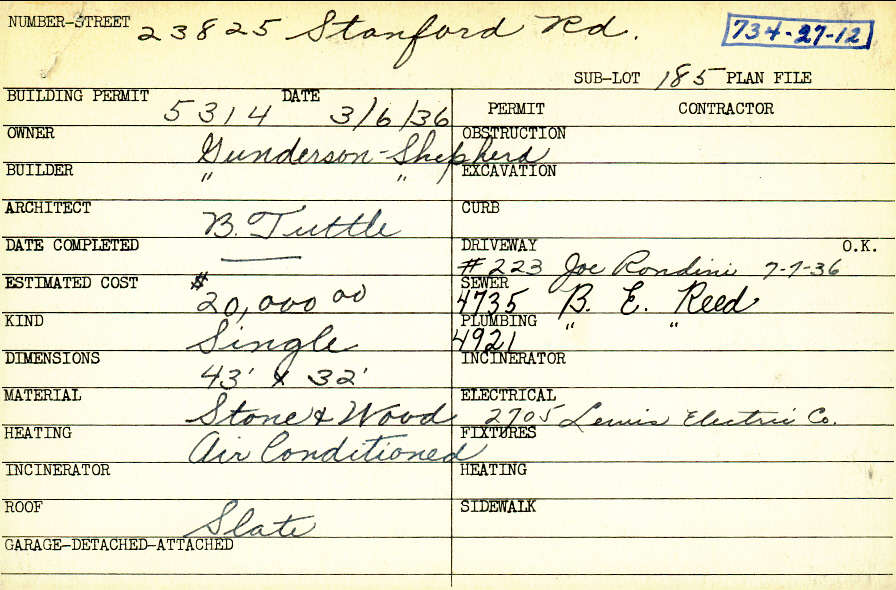 NUMBER-STREET 23825 Stanford Rd. 734-27-12
SUB-LOT 185 PLAN FILE
BUILDING PERMIT 5314 DATE 3/6/36
PERMIT CONTRACTOR
OWNER Gunderson-Shepherd
OBSTRUCTION
BUILDER " "
EXCAVATION
ARCHITECT B. Tuttle
CURB
DATE COMPLETED —
DRIVEWAY O.K.
#223 Joe Rondini 7-7-36
ESTIMATED COST $20,000 00
SEWER
4735 B. E. Reed
KIND Single
PLUMBING " "
4921
DIMENSIONS 43' x 32'
INCINERATOR
MATERIAL Stone & Wood
ELECTRICAL
2705 Lewis Electric Co.
HEATING Air Conditioned
FIXTURES
INCINERATOR
HEATING
ROOF Slate
SIDEWALK
GARAGE-DETACHED-ATTACHED